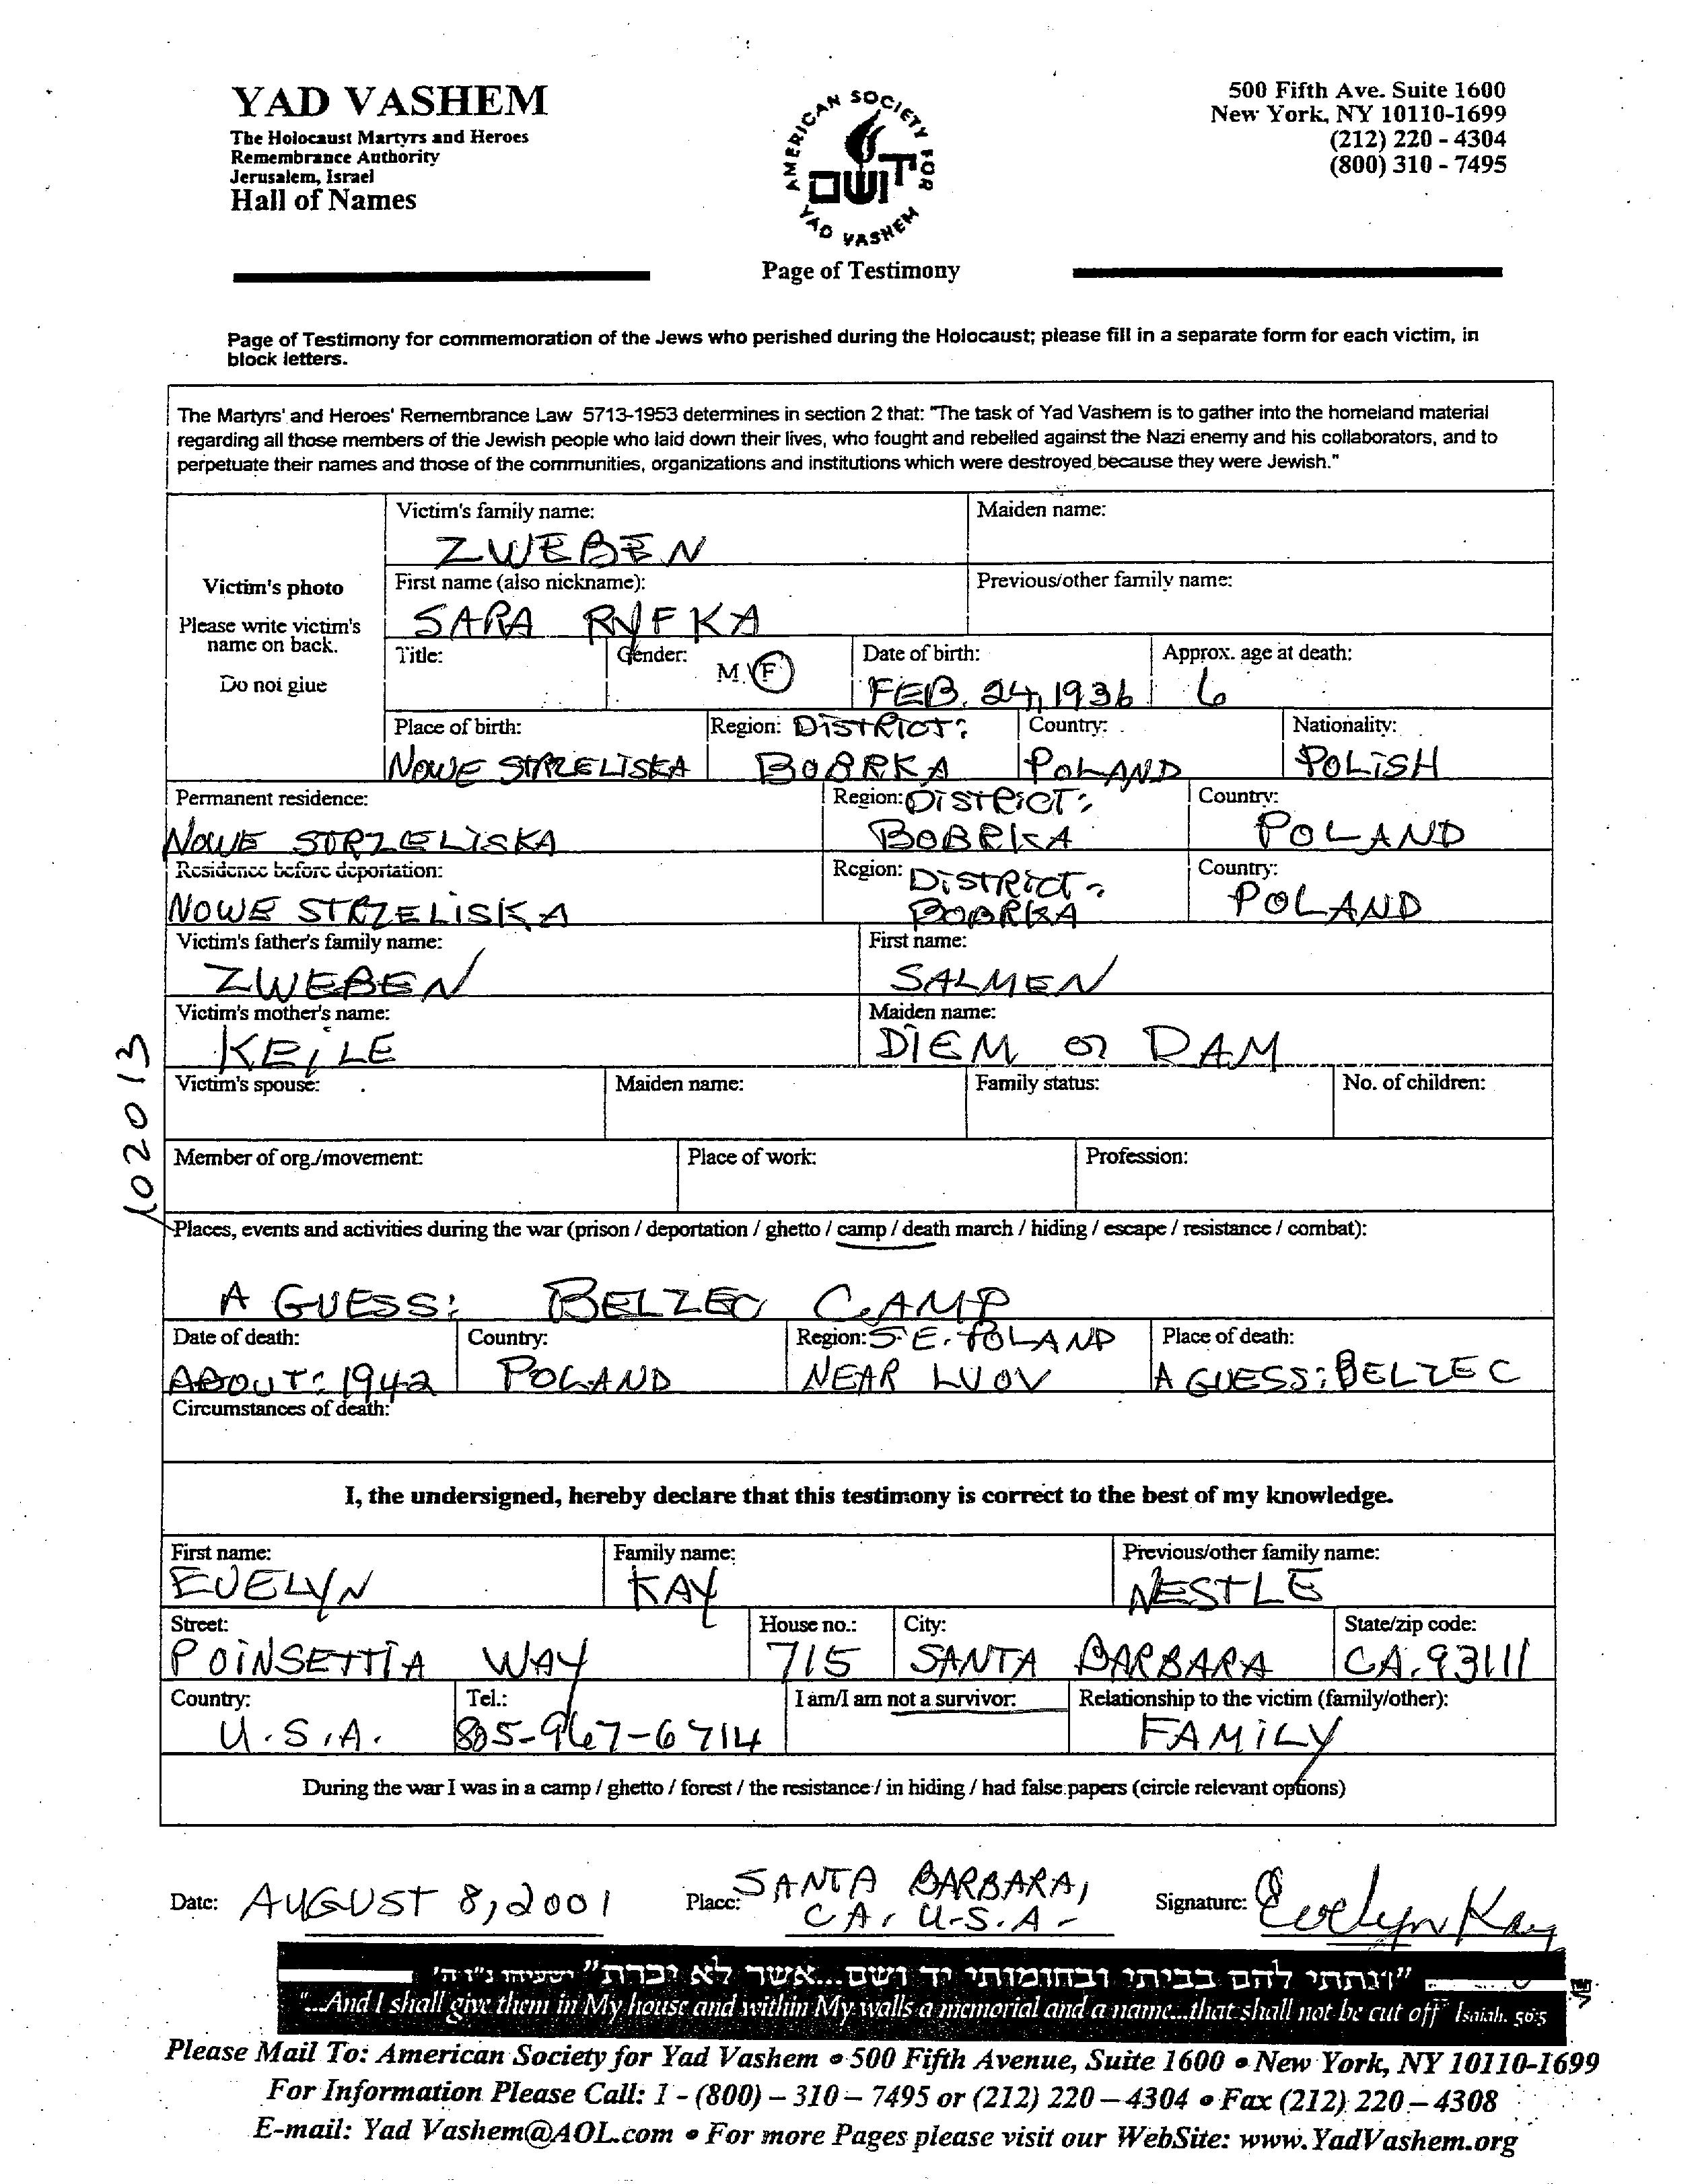 YAD VASHEM
The Holocaust Martyrs and Heroes
Remembrance Authority
Jerusalem, Israel
Hall of Names
AMERICAN SOCIETY FOR
יד ושם
YAD VASHEM
Page of Testimony
500 Fifth Ave. Suite 1600
New York, NY 10110-1699
(212) 220 - 4304
(800) 310 - 7495
Page of Testimony for commemoration of the Jews who perished during the Holocaust; please fill in a separate form for each victim, in
block letters.
The Martyrs' and Heroes' Remembrance Law 5713-1953 determines in section 2 that: "The task of Yad Vashem is to gather into the homeland material
regarding all those members of the Jewish people who laid down their lives, who fought and rebelled against the Nazi enemy and his collaborators, and to
perpetuate their names and those of the communities, organizations and institutions which were destroyed because they were Jewish."
Victim's photo
Please write victim's
name on back.
Do not glue
Victim's family name: Maiden name:
ZWEBEN
First name (also nickname): Previous/other family name:
SARA RYFKA
Title: Gender: M F Date of birth: Approx. age at death:
FEB. 24, 1936 6
Place of birth: Region: DISTRICT: Country: Nationality:
NOWE STRZELISKA BOBRKA POLAND POLISH
Permanent residence: Region: DISTRICT: Country:
NOWE STRZELISKA BOBRKA POLAND
Residence before deportation: Region: DISTRICT: Country:
NOWE STRZELISKA BOBRKA POLAND
Victim's father's family name: First name:
ZWEBEN SALMEN
Victim's mother's name: Maiden name:
KEILE DIEM or RAM
Victim's spouse: Maiden name: Family status: No. of children:
102013
Member of org./movement: Place of work: Profession:
Places, events and activities during the war (prison / deportation / ghetto / camp / death march / hiding / escape / resistance / combat):
A GUESS: BELZEC CAMP
Date of death: Country: Region: S.E. POLAND Place of death:
ABOUT: 1942 POLAND NEAR LVOV A GUESS: BELZEC
Circumstances of death:
I, the undersigned, hereby declare that this testimony is correct to the best of my knowledge.
First name: Family name: Previous/other family name:
EVELYN KAY NESTLE
Street: House no.: City: State/zip code:
POINSETTIA WAY 715 SANTA BARBARA CA. 93111
Country: Tel.: I am/I am not a survivor: Relationship to the victim (family/other):
U.S.A. 805-967-6714 FAMILY
During the war I was in a camp / ghetto / forest / the resistance / in hiding / had false papers (circle relevant options)
Date: AUGUST 8, 2001 Place: SANTA BARBARA, Signature: Evelyn Kay
CA, U.S.A.
"ונתתי להם בביתי ובחומותי יד ושם...אשר לא יכרת" ישעיהו נ"ו ה'
"...And I shall give them in My house and within My walls a memorial and a name...that shall not be cut off" Isaiah. 56:5
Please Mail To: American Society for Yad Vashem • 500 Fifth Avenue, Suite 1600 • New York, NY 10110-1699
For Information Please Call: 1 - (800) – 310 – 7495 or (212) 220 – 4304 • Fax (212) 220 – 4308
E-mail: Yad Vashem@AOL.com • For more Pages please visit our WebSite: www.YadVashem.org